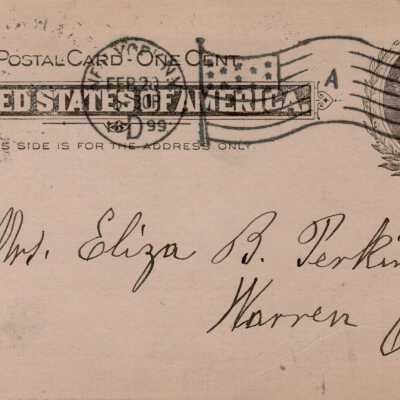 POSTAL CARD - ONE CENT
ED STATES OF AMERICA.
S SIDE IS FOR THE ADDRESS ONLY
NEW YORK, N.Y.
FEB 20
D
1899
A
Mrs. Eliza B. Perkin
Warren